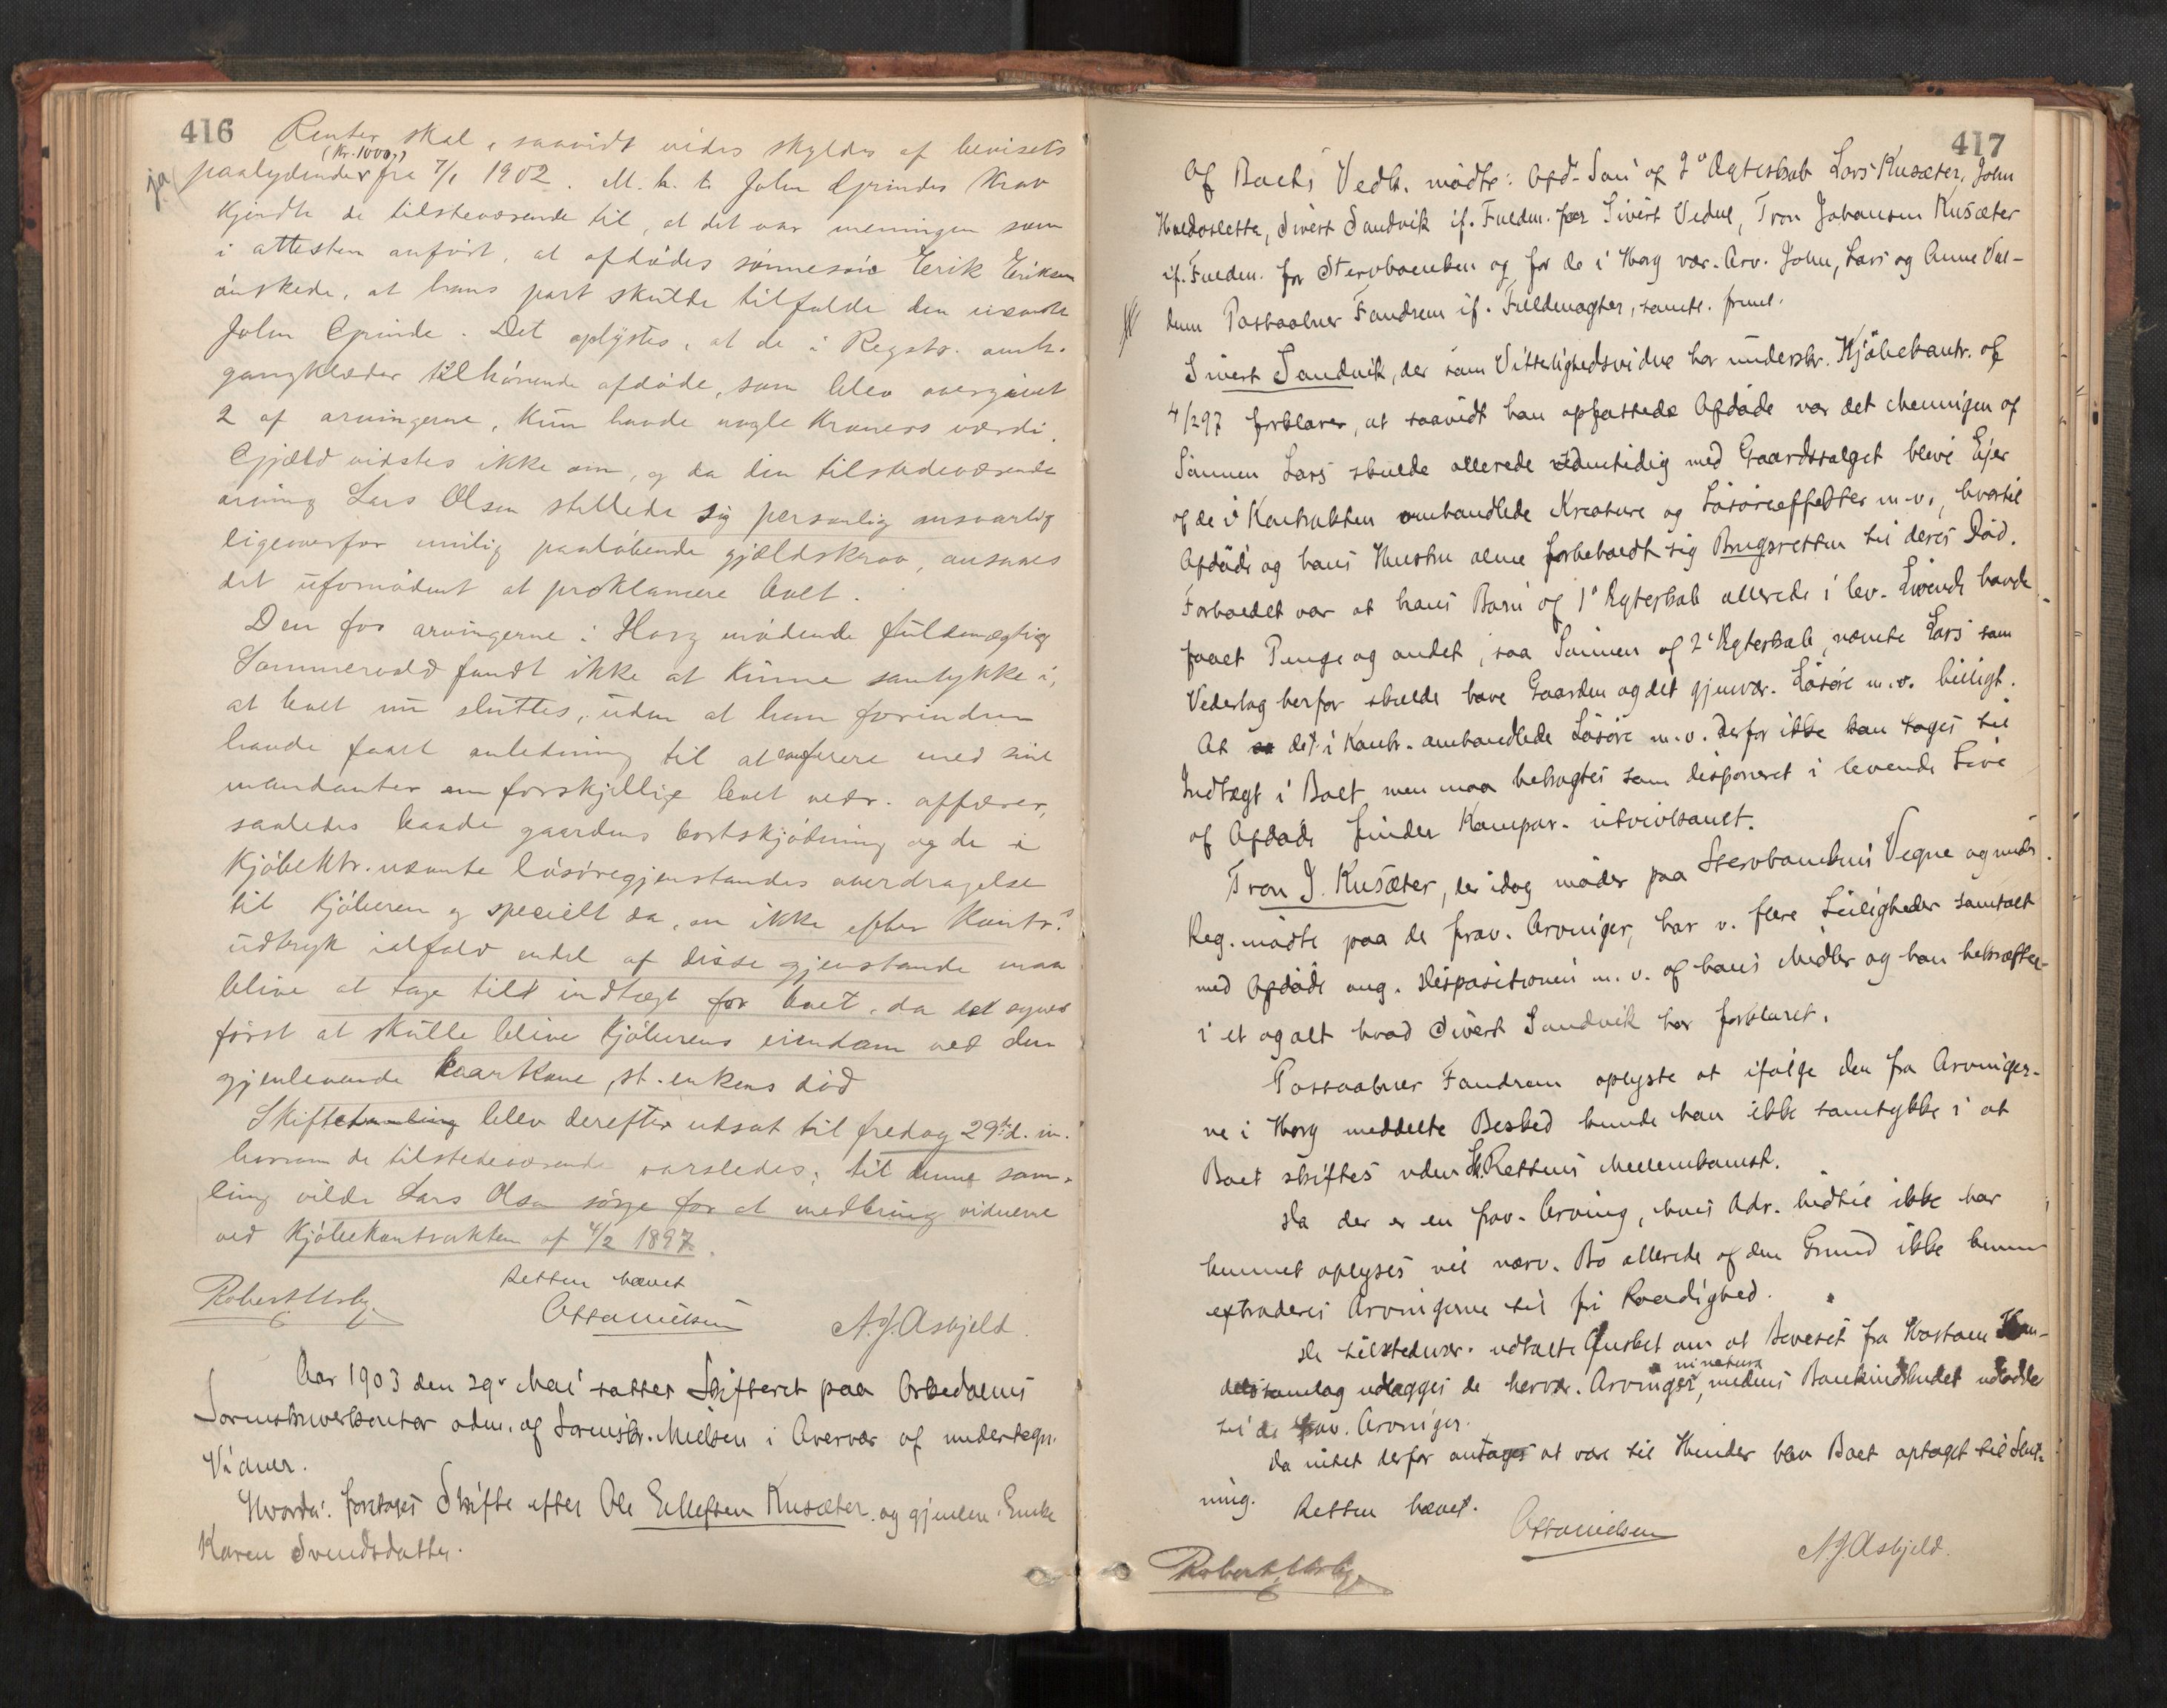 416
Renter skal, saavidt vides skyldes af bevisets
(Kr. 1000,)
ja paalydende fra 7/1 1902. M. h. t. John Grindes Krav
kjendte de tilstedeværende til, at det var meningen som
i attesten anført, at afdødes sønnesøn Eerik Eriksen
ønskede, at hans part skulde tilfalde den nævnte
John Grinde. Det oplystes, at de i Regstr. omh.
gangklæder tilhørende afdøde, som blev overgivet
2 af arvingerne, kun havde nogle Kroners værdi.
Gjæld vidstes ikke om, og da den tilstedeværende
arving Lars Olsen stillede sig personlig ansvarlig
ligeoverfor mulig paaløbende gjældskrav, ansaaes
det ufornødent at proklamere boet.
Den for arvingerne i Horg mødende fuldmægtig
Sommervold fandt ikke at kunne samtykke i,
at boet nu sluttes, uden at han forinden
havde faaet anledning til at conferere med sine
mandanter om forskjellige boet vedr. affærer,
saaledes baade gaardens bortskjødning og de i
Kjøbektr. nævnte løsøregjenstandes overdragelse
til Kjøberen og specielt da, om ikke efter Kontr.s
udtryk ialfald endel af disse gjenstande maa
blive at tage till indtægt for boet, da det synes
først at skulle blive Kjøberens eiendom ved den
gjenlevende Kaarkone, st. enkens død
Skiftesamling blev derefter udsat til fredag 29de d. m.
hvorom de tilstedeværende varsledes; til denne sam-
ling vilde Lars Olsen sørge for at medbring vidnerne
ved Kjøbekontrakten af 4/2 1897.
Retten hævet
Robert Ursby. Otto Nielsen A. J. Asbjeld.
Aar 1903 den 29de Mai sattes Skifteret paa Orkedalens
Sorenskriverkontor adm. af Sorenskr. Nielsen i Overvær af undertegn.
Vidner.
Hvorda: foretoges Skifte efter Ole Ellefsen Kusæter og gjenlev. Enke
Karen Svendsdatter.
417
Af Boets Vedk. mødte: Afd. Søn af 2det Ægteskab Lars Kusæter, John
Haldosletta, Sivert Sandvik if. Fuldm. for Sivert Vedul, Tron Johansen Kusæter
if. Fuldm. for Stervboenken og for de i Horg vær. Arv. John, Lars og Anne
dum Postaabner Fandrem if. Fuldmagter, samtl. freml.
Sivert Sandvik, der som Vitterlighedsvidne har underskr. Kjøbekontr. af
4/2 97 forklarer, at saavidt han opfattede Afdøde var det Meningen at
Sønnen Lars skulde allerede samtidig med Gaardsalget blive Ejer
af de i Kontrakten omhandlede Kreature og Løsøreeffekter m.v., hvortil
Afdøde og hans Hustru alene forbeholdt sig Brugsretten til deres Død.
Forholdet var at hans Børn af 1ste Ægteskab allerede i lev. Livende havde
faaet Penge og andet, saa Sønnen af 2det Ægteskab, nævnte Lars som
Vederlag herfor skulde have Gaarden og det gjenvær. Løsøre m.v. billigt.
At det i Kontr. omhandlede Løsøre m.v. derfor ikke kan tages til
Indtægt i Boet men maa betragtes som disponeret i levende Live
af Afdøde finder Kompar. utvivlsomt.
Tron J. Kusæter, der idag møder paa Stervboenkens Vegne og under
Reg. mødte paa de frav. Arvinger, har v. flere Leiligheder samtalt
med Afdøde ang. Dispositionen m.v. af hans Midler og han bekræfter
i et og alt hvad Sivert Sandvik har forklaret.
Postaabner Fandrem oplyste at ifølge den fra Arvinger-
ne i Horg meddelte Besked kunde han ikke samtykke i at
Boet skiftes uden Sk.Rettens Mellemkomst.
Da der er en frav. Arving, hvis Adr. hidtil ikke har
kunnet oplyses vil nærv. Bo allerede af den Grund ikke kunne
extraderes Arvingerne til fri Raadighed.
De tilstedevær. udtalte Ønsket om at Beviset fra Hostoen Han-
in natura
delssamlag udlægges de hervær. Arvinger, medens Bankindskudet udlodde
til de frav. Arvinger.
Da intet derfor antages at være til Hinder blev Boet optaget til Slut-
ning. Retten hævet.
Otto Nielsen
Robert Ursby A. J. Asbjeld.